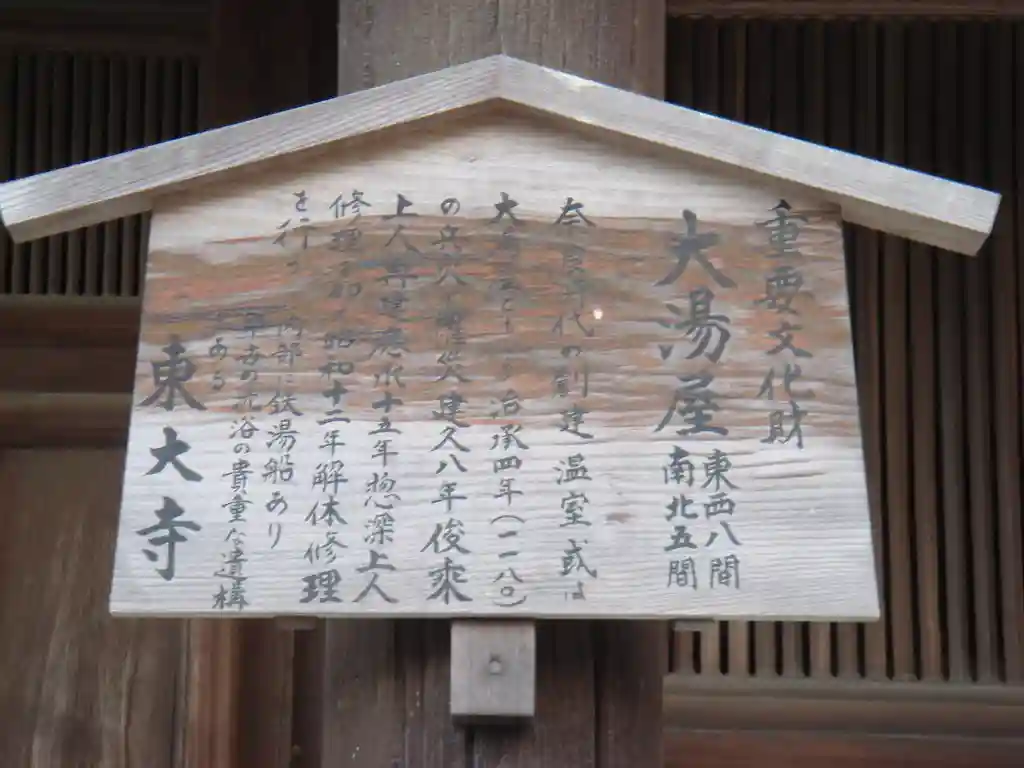 重要文化財
大湯屋
東西八間
南北五間
奈良時代の創建 温室或は
大湯 治承四年(一一八〇)
の兵火 罹災 建久八年 俊乘
上人再建 應永十五年惣深上人
修理 昭和十二年解体修理
を行
内部に鉄湯船あり
の入浴の貴重な遺構
である
東大寺